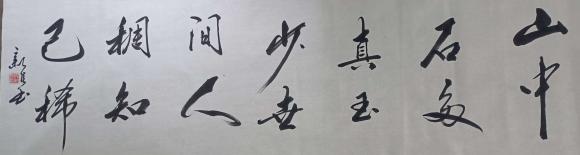 山中
石多
真玉
少世
间人
稠知
己稀